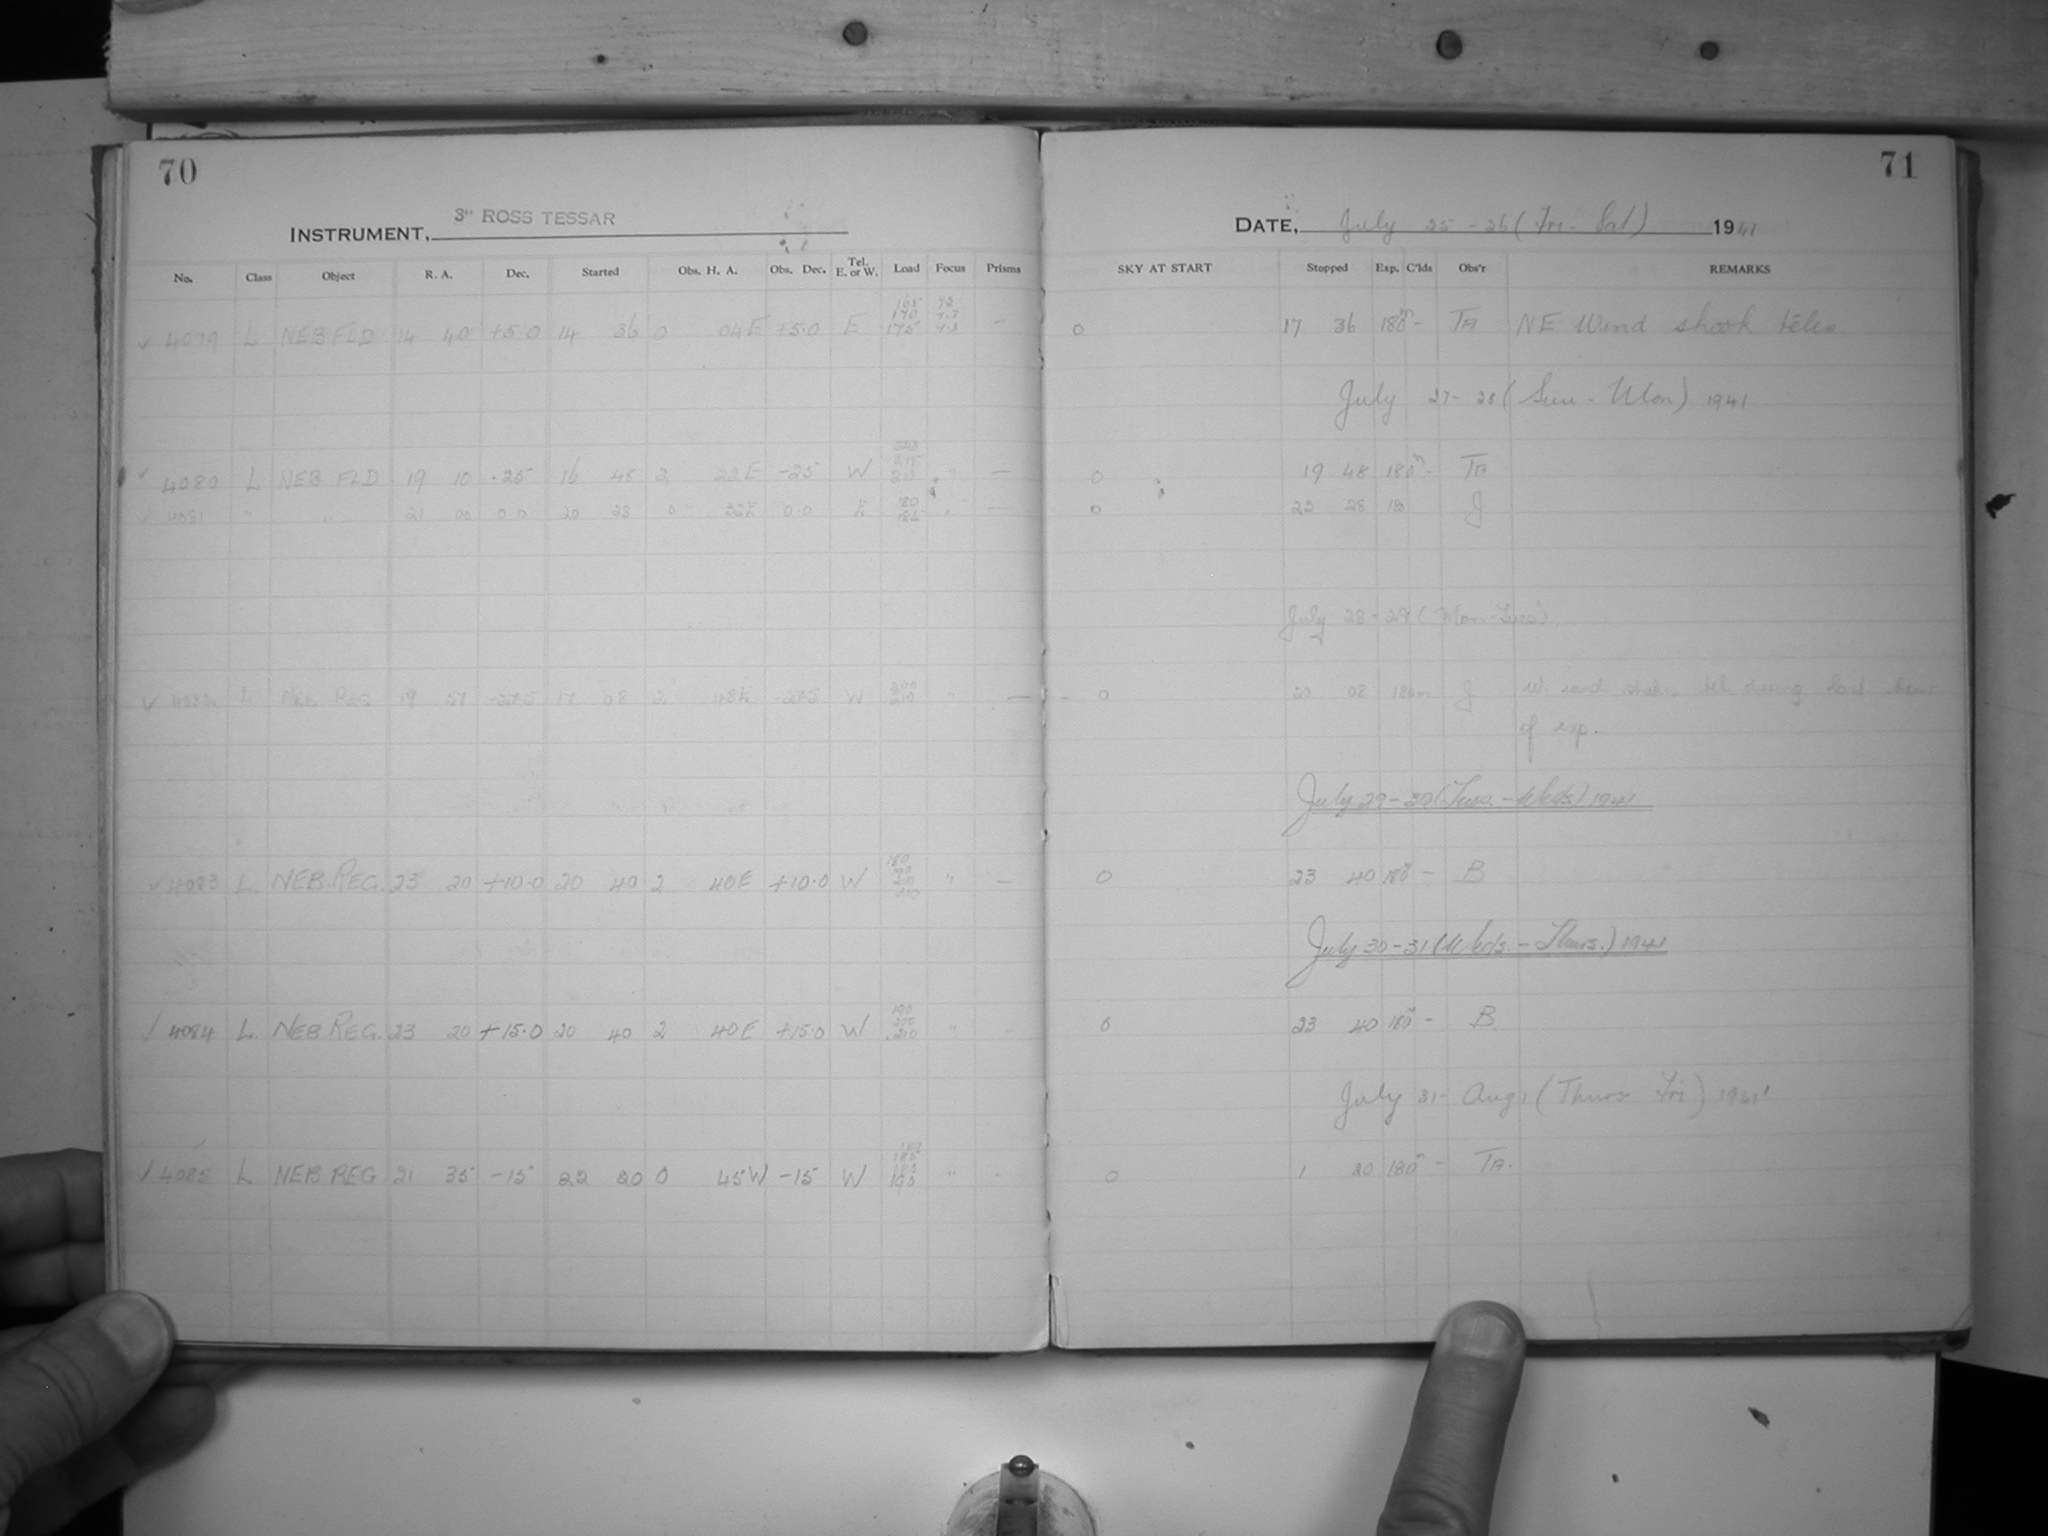 70
INSTRUMENT, 3" ROSS TESSAR
No. Class Object R. A. Dec. Started Obs. H. A. Obs. Dec. Tel. E. or W. Load Focus Prisms
4079 L NEB FLD 14 40 +5.0 14 36 0 04E +5.0 E 165 170 175 —
4080 L NEB FLD 19 10 -25 16 48 2 22E -25 W " —
4081 " " 21 00 0.0 20 28 0 32E 0.0 E 180 " —
L NEB REG 19 57 -27.5 17 08 2 48E -27.5 W 210 " —
4083 L. NEB. REG. 23 20 +10.0 20 40 2 40E +10.0 W 180 210 " —
4084 L. NEB. REG. 23 20 +15.0 20 40 2 40E +15.0 W 190 200 210 " -
4085 L NEB REG 21 35 -15 22 20 0 45W -15 W 190 " -
71
DATE, July 25-26 (Fri. Sat) 1941
SKY AT START Stopped Exp. C'lds Obs'r REMARKS
0 17 36 180m - TA NE Wind shook teles.
July 27-28 (Sun - Mon) 1941
0 19 48 180m - TA
0 23 28 180 J
July 28-29 (Mon-Tues).
0 20 08 180m J W. wind shakes tel during last hour
of exp.
July 29-30 (Tues. - Weds) 1941
0 23 40 180m - B
July 30-31 (Weds. - Thurs.) 1941
0 23 40 180m - B
July 31- Aug 1 (Thurs Fri) 1941
0 1 20 180m - TA.